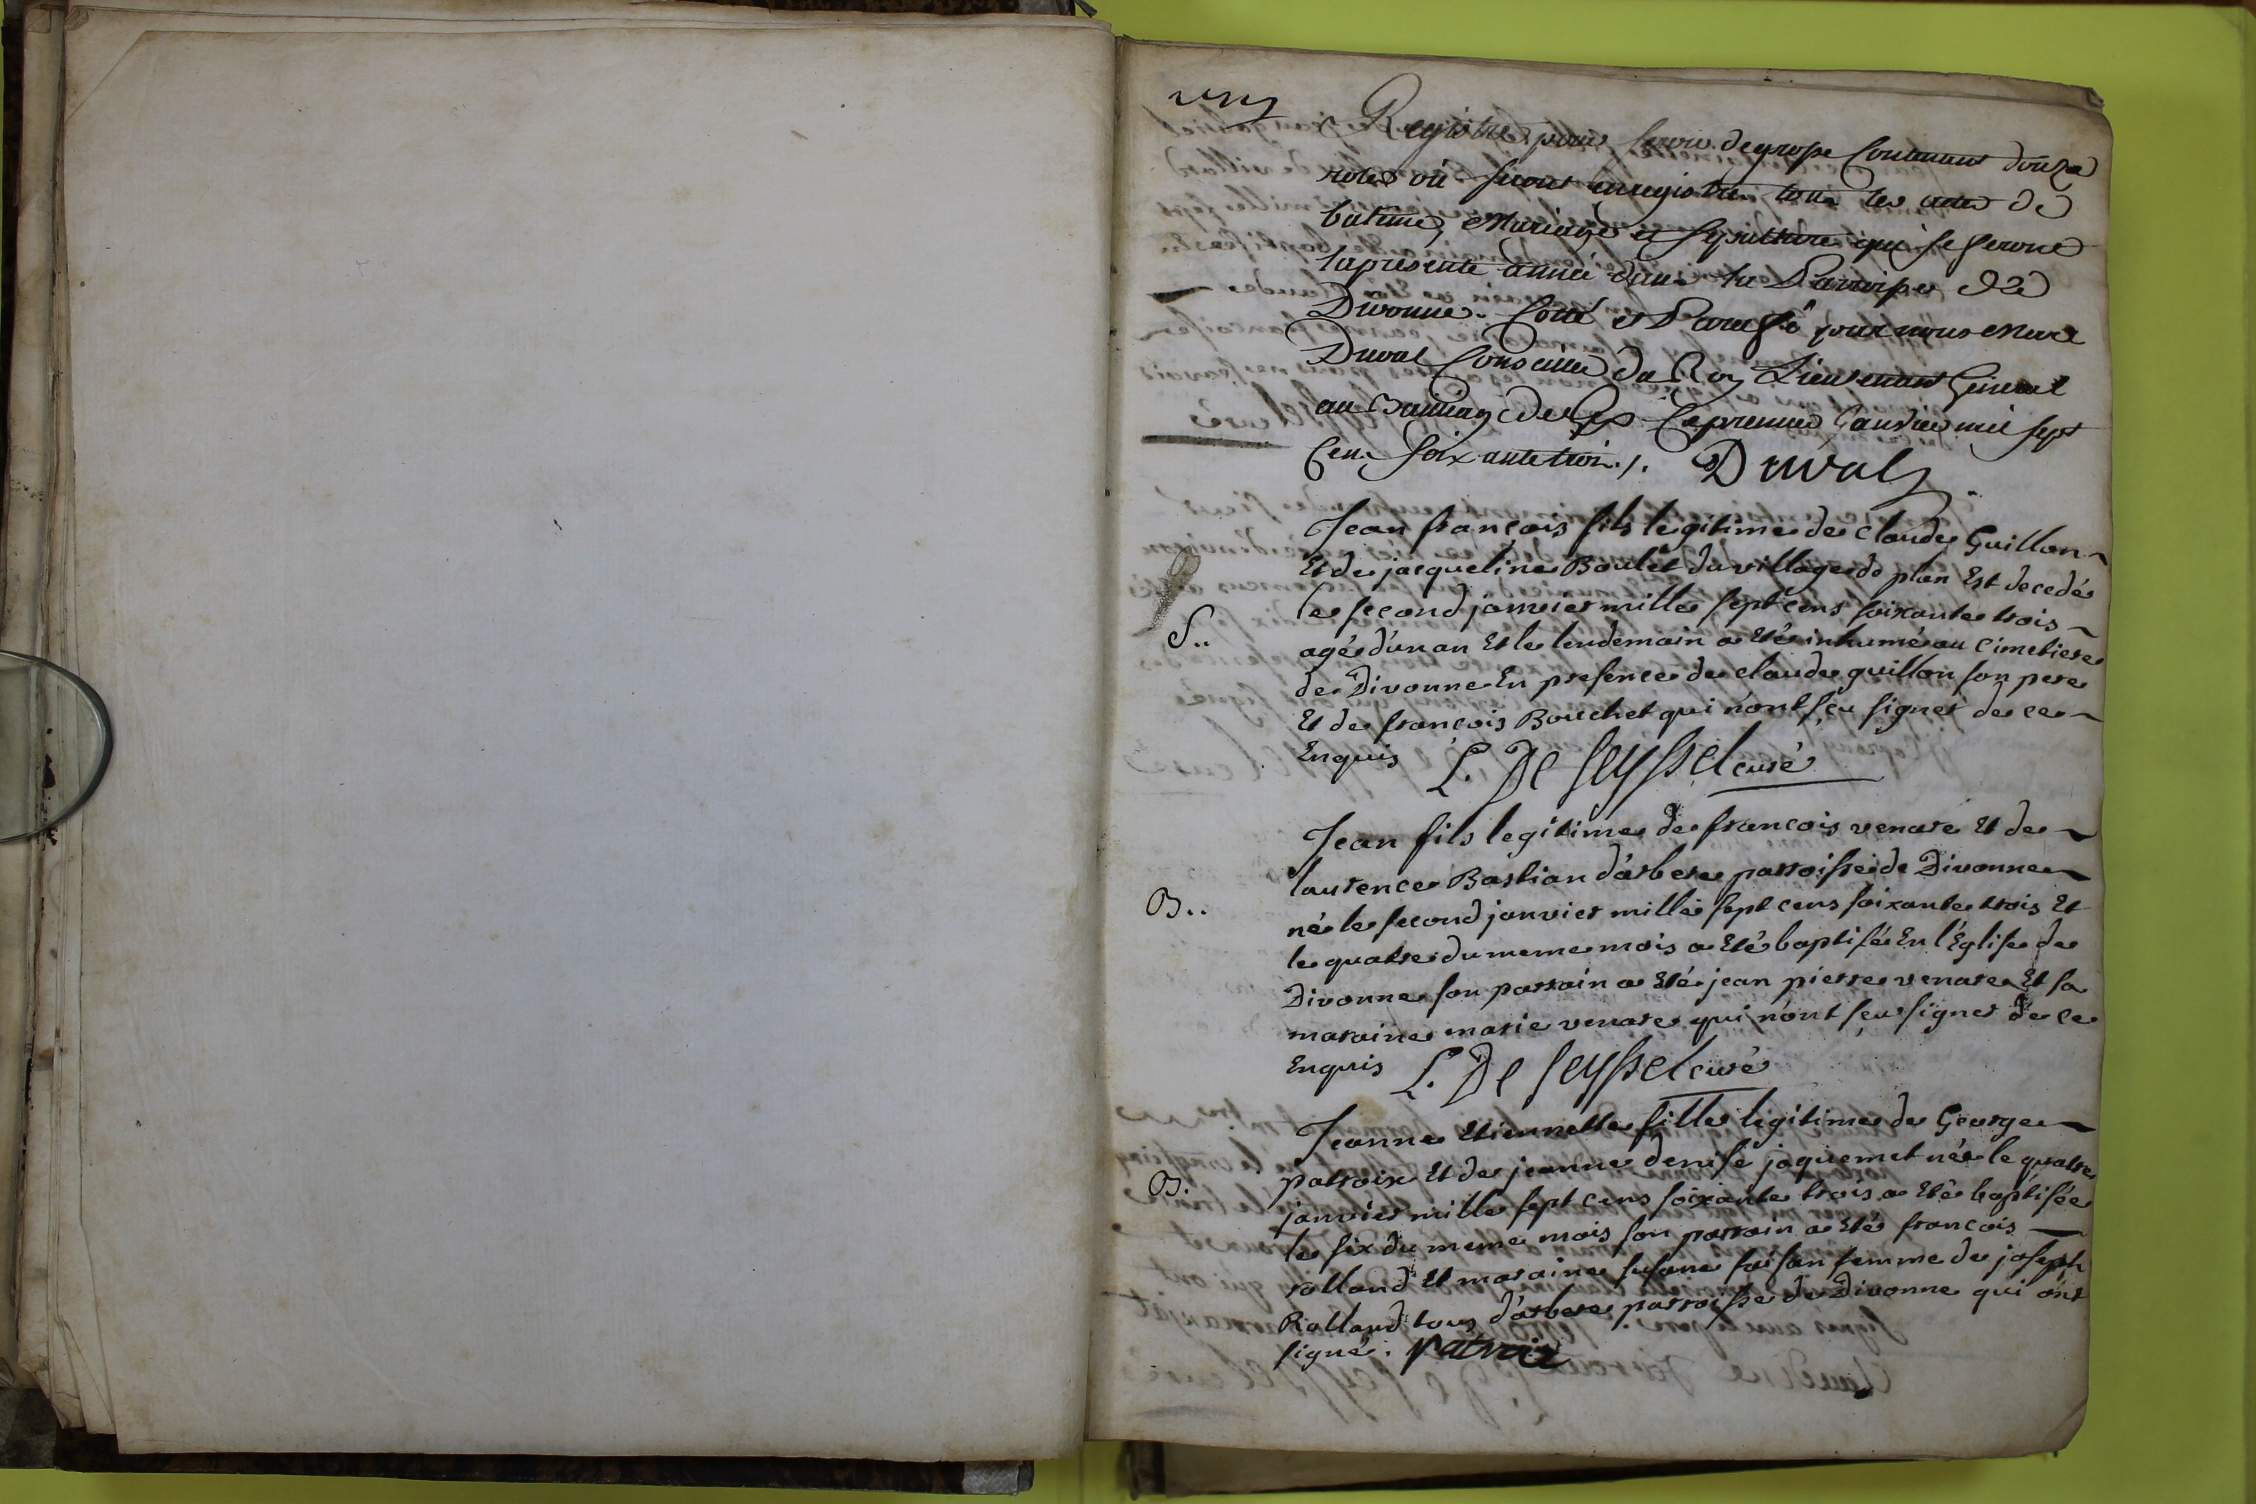 Registre pour servir de grosse Contenant douze
roles où seront enregistrés tous les actes de
batême, Mariage et sepulture qui se feront
la presente année dans la Parroisse De
Divonne. Cotté et Paraffé par nous Marc
Duval Conseiller du Roy Lieutenant General
au Bailliage de Gex Le premier Janvier mil sept
Cent soixante trois ./. Duval
Jean françois fils legitime de claude Guillon ~
Et de jacqueline Boulet du village de plan Est decedé
le second janvier mille sept cens soixante trois ~
S..
agé d'un an Et le lendemain a Eté inhumé au cimetiere
de Divonne En presence de claude guillon son pere
Et de françois Bouchet qui n'ont sçu signer de ce ~
Enquis L. De Seyssel curé
Jean fils legitime de francois venare Et de ~
laurence Bastian d'arbere parroisse de Divonne ~
B..
né le second janvier mille sept cens soixante trois Et
le quatre du meme mois a Eté baptisé En l'Eglise de
Divonne son parrain a Eté jean pierre venare Et sa
maraine marie venare qui n'ont sçu signer de ce
Enquis L. De Seyssel curé
Jeanne Etiennette fille legitime de George ~
patroix Et de jeanne denise jaquemet née le quatre
B.
janvier mille sept cens soixante trois a Eté baptisée
le six du meme mois son parrain a Eté francois ~
rolland Et maraine susane femme de joseph
Rolland tous d'arbere parroisse de Divonne qui ont
signé. patroix